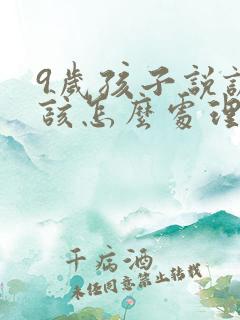 9歲孩子說
該怎麼處理
千病酒
未经同意禁止转载